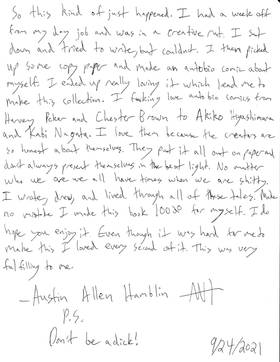 So this kind of just happened. I had a week off
from my day job and was in a creative rut. I sat
down and tried to write, but couldnt. I then picked
up some copy paper and made an autobio comic about
myself. I ended up really loving it which lead me to
make this collection. I fucking love autobio comics from
Harvey Pekar and Chester Brown to Akiko Higashimura
and Kabi Nagata. I love them because the creators are
so honest about themselves. They put it all out on paper and
dont always present themselves in the best light. No matter
who we are we all have times when we are shitty.
I wrote, drew, and lived through all of these tales. Make
no mistake I make this book 100% for myself. I do
hope you enjoy it. Even though it was hard for me to
make this I loved every second of it. This was very
fulfilling to me.
—Austin Allen Hamblin
P.S.
Don't be a dick!
9/24/2021